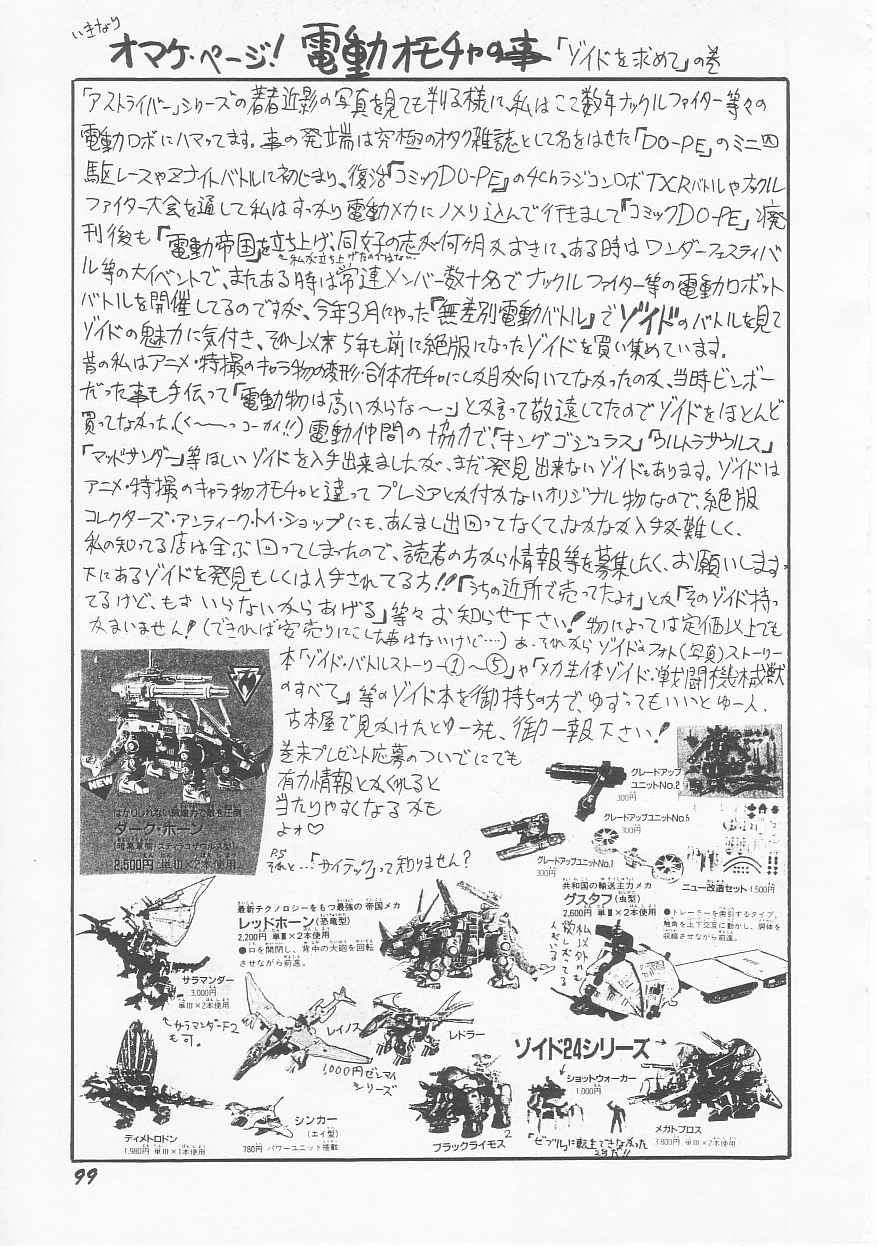 いきなり
オマケ・ページ! 電動オモチャの事 「ゾイドを求めて」の巻
「アストライバー」シリーズの著者近影の写真を見ても判る様に、私はここ数年ナックルファイター等々の
電動ロボにハマッてます。事の発端は究極のオタク雑誌として名をはせた「DO-PE」のミニ四
駆レースやZナイトバトルに初じまり、復活『コミックDO-PE』の4chラジコンロボTXRバトルやナックル
ファイター大会を通して私はすっかり電動メカにノメり込んで行きまして『コミックDO-PE』廃
刊後も『電動帝国』を立ち上げ、同好の志が何ヶ月かおきに、ある時はワンダーフェスティバ
私が立ち上げたのではない
ル等の大イベントで、またある時は常連メンバー数十名でナックルファイター等の電動ロボット
バトルを開催してるのですが、今年3月にやった『無差別電動バトル』でゾイドのバトルを見て
ゾイドの魅力に気付き、それ以来5年も前に絶版になったゾイドを買い集めています。
昔の私はアニメ・特撮のキャラ物の変形・合体オモチャにしか目が向いてなかったのが、当時ビンボー
だった事も手伝って「電動物は高いからな〜」とか言って敬遠してたのでゾイドをほとんど
買ってなかった、(く〜〜っコーカイ!!) 電動仲間の協力で、「キングゴジュラス」「ウルトラザウルス」
「マッドサンダー」等ほしいゾイドを入手出来ましたが、まだ発見出来ないゾイドもあります。ゾイドは
アニメ・特撮のキャラ物オモチャと違ってプレミアとか付かないオリジナル物なので、絶版
コレクターズ・アンティーク・トイ・ショップにも、あんまし出回ってなくて、なかなか入手が難しく、
私の知ってる店は全ぶ回ってしまったので、読者の方から情報等を募集したく、お願いします。
下にあるゾイドを発見もしくは入手されてる方!!「うちの近所で売ってたよォ」とか「そのゾイド持っ
てるけど、もぉいらないからあげる」等々お知らせ下さい! 物によっては定価以上でも
かまいません!(できれば安売りにこした事はないけど…) あ、それからゾイドのフォト(写真)ストーリー
本「ゾイド・バトルストーリー①〜⑤」や「メカ生体ゾイド・戦闘機械獣
のすべて」等のゾイド本を御持ちの方で、ゆずってもいいとゆー人、
古本屋で見かけたとゆー方も、御一報下さい!
巻末プレゼント応募のついでにでも
有力情報とかくれると
当たりやすくなるかも
よォ♡
P.S
それと…「サイテック」って知りません?
NEW
はかりしれない破壊力で敵を圧倒
ダーク・ホーン
(暗黒軍団・スティラコザウルス型)
2,500円 単III×2本使用
グレードアップ
ユニットNo.2
300円
グレードアップユニットNo.5
300円
グレードアップユニットNo.1
300円
ニュー改造セット 1,500円
最新テクノロジーをもつ最強の帝国メカ
レッドホーン(恐竜型)
2,200円 単III×2本使用
●口を開閉し、背中の大砲を回転
させながら前進。
共和国の輸送主力メカ
グスタフ(虫型)
2,600円 単III×2本使用
●トレーラーを索引するタイプ。
触角を上下交互に動かし、胴体を
収縮させながら前進。
私以外にも
欲しがってる
人がいる
サラマンダー
3,000円
単III×2本使用
サラマンダーF2
も可。
レイノス
レドラー
1,000円ゼンマイ
シリーズ
ゾイド24シリーズ
ショットウォーカー
1,000円
メガトプロス
3,800円 単III×2本使用
ディメトロドン
1,980円 単III×1本使用
シンカー
(エイ型)
780円 パワーユニット搭載
ブラックライモス
2
99